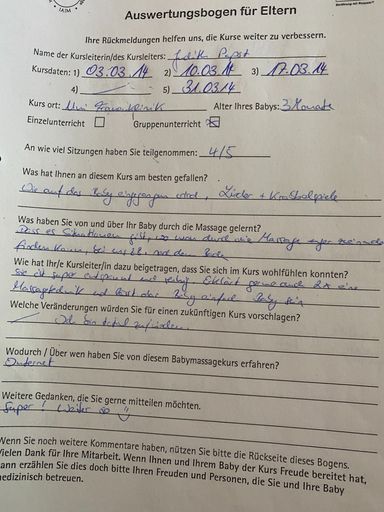 Auswertungsbogen für Eltern
Ihre Rückmeldungen helfen uns, die Kurse weiter zu verbessern.
Name der Kursleiterin/des Kursleiters: Judith Papst
Kursdaten: 1) 03.03.14 2) 10.03.14 3) 17.03.14
4) 5) 31.03.14
Kurs ort: Uni Frauenklinik Alter Ihres Babys: 3 Monate
Einzelunterricht Gruppenunterricht
An wie viel Sitzungen haben Sie teilgenommen: 4/5
Was hat Ihnen an diesem Kurs am besten gefallen?
Wie auf das Baby eingegangen wird, Lieder + Krabbelspiele
Was haben Sie von und über Ihr Baby durch die Massage gelernt?
Dass es Situationen gibt, wo man durch die Massage
finden kann, bei uns z.B. nach dem Baden
Wie hat Ihr/e Kursleiter/in dazu beigetragen, dass Sie sich im Kurs wohlfühlen konnten?
Sie ist super entspannt und ruhig. Erklärt gerne auch 2x eine
Massagetechnik und lässt das Baby einfach Baby sein
Welche Veränderungen würden Sie für einen zukünftigen Kurs vorschlagen?
Ich bin total zufrieden.
Wodurch / Über wen haben Sie von diesem Babymassagekurs erfahren?
Internet
Weitere Gedanken, die Sie gerne mitteilen möchten.
Super! Weiter so
Wenn Sie noch weitere Kommentare haben, nützen Sie bitte die Rückseite dieses Bogens.
Vielen Dank für Ihre Mitarbeit. Wenn Ihnen und Ihrem Baby der Kurs Freude bereitet hat,
dann erzählen Sie dies doch bitte Ihren Freunden und Personen, die Sie und Ihre Baby
medizinisch betreuen.